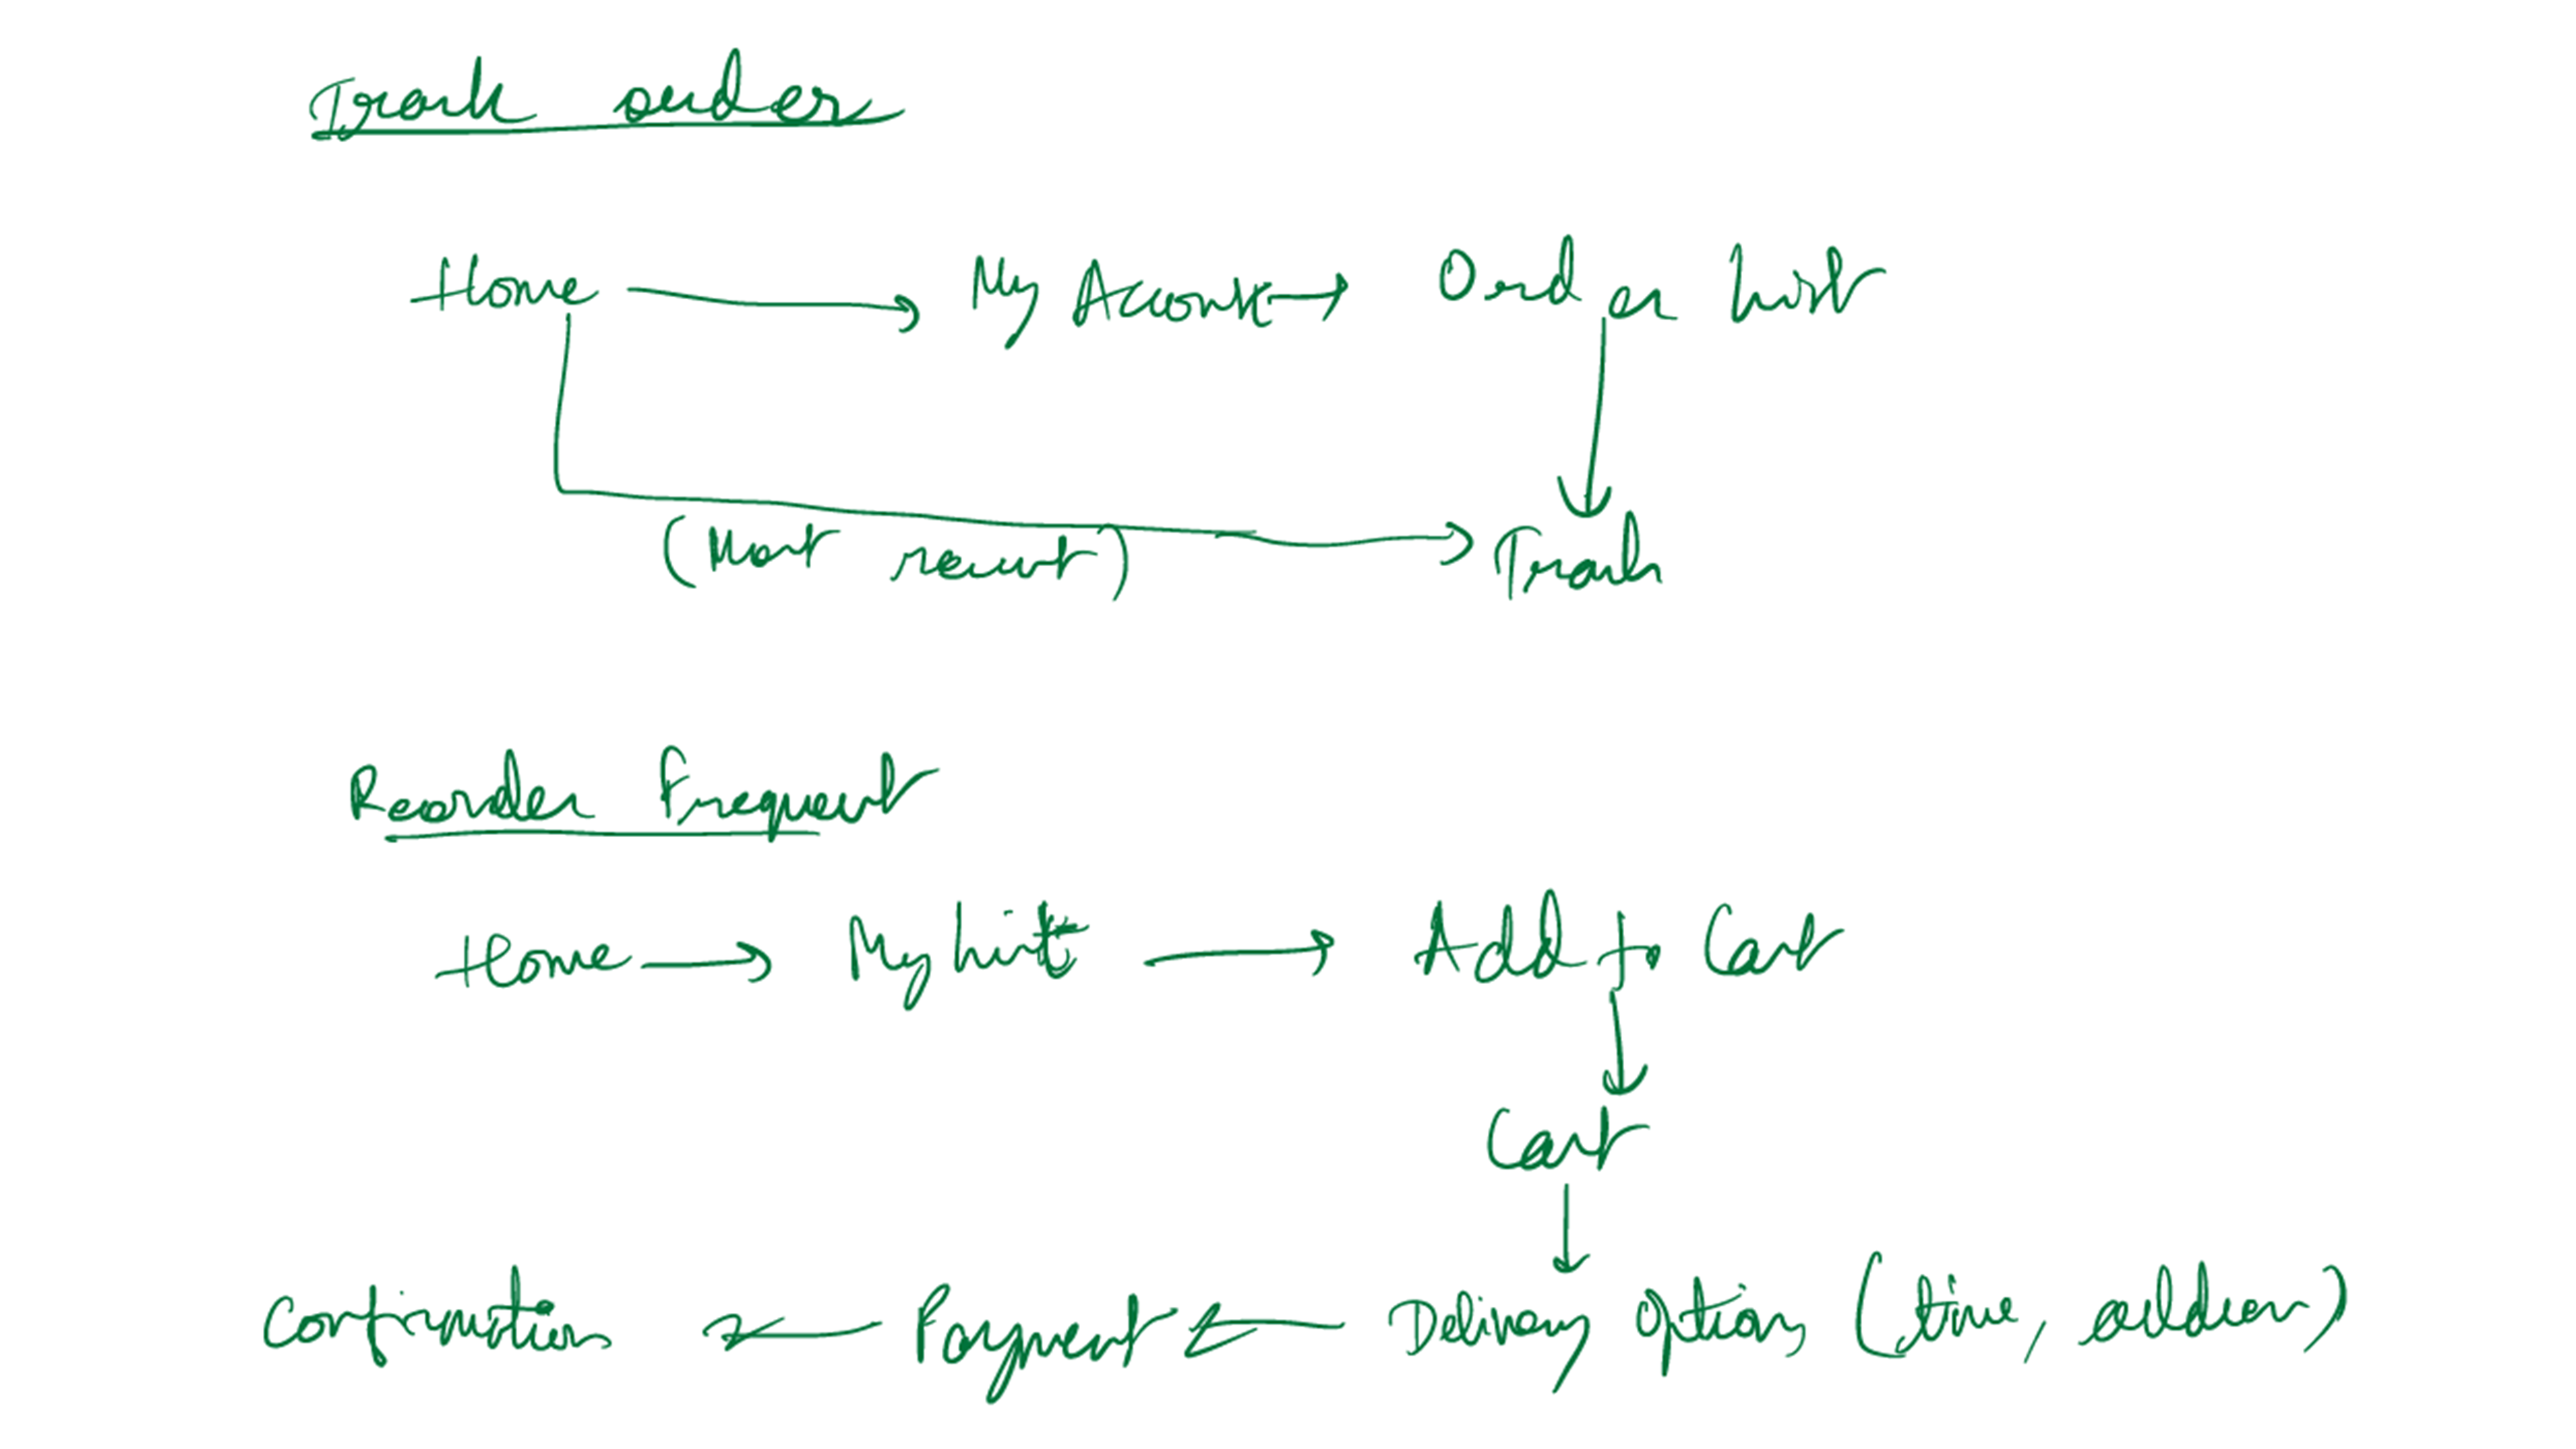 Track order
Home → My Account → Order List
(Most recent) → Track
Reorder Frequent
Home → My List → Add to Cart
Cart
Confirmation ← Payment ← Delivery Options (time, address)